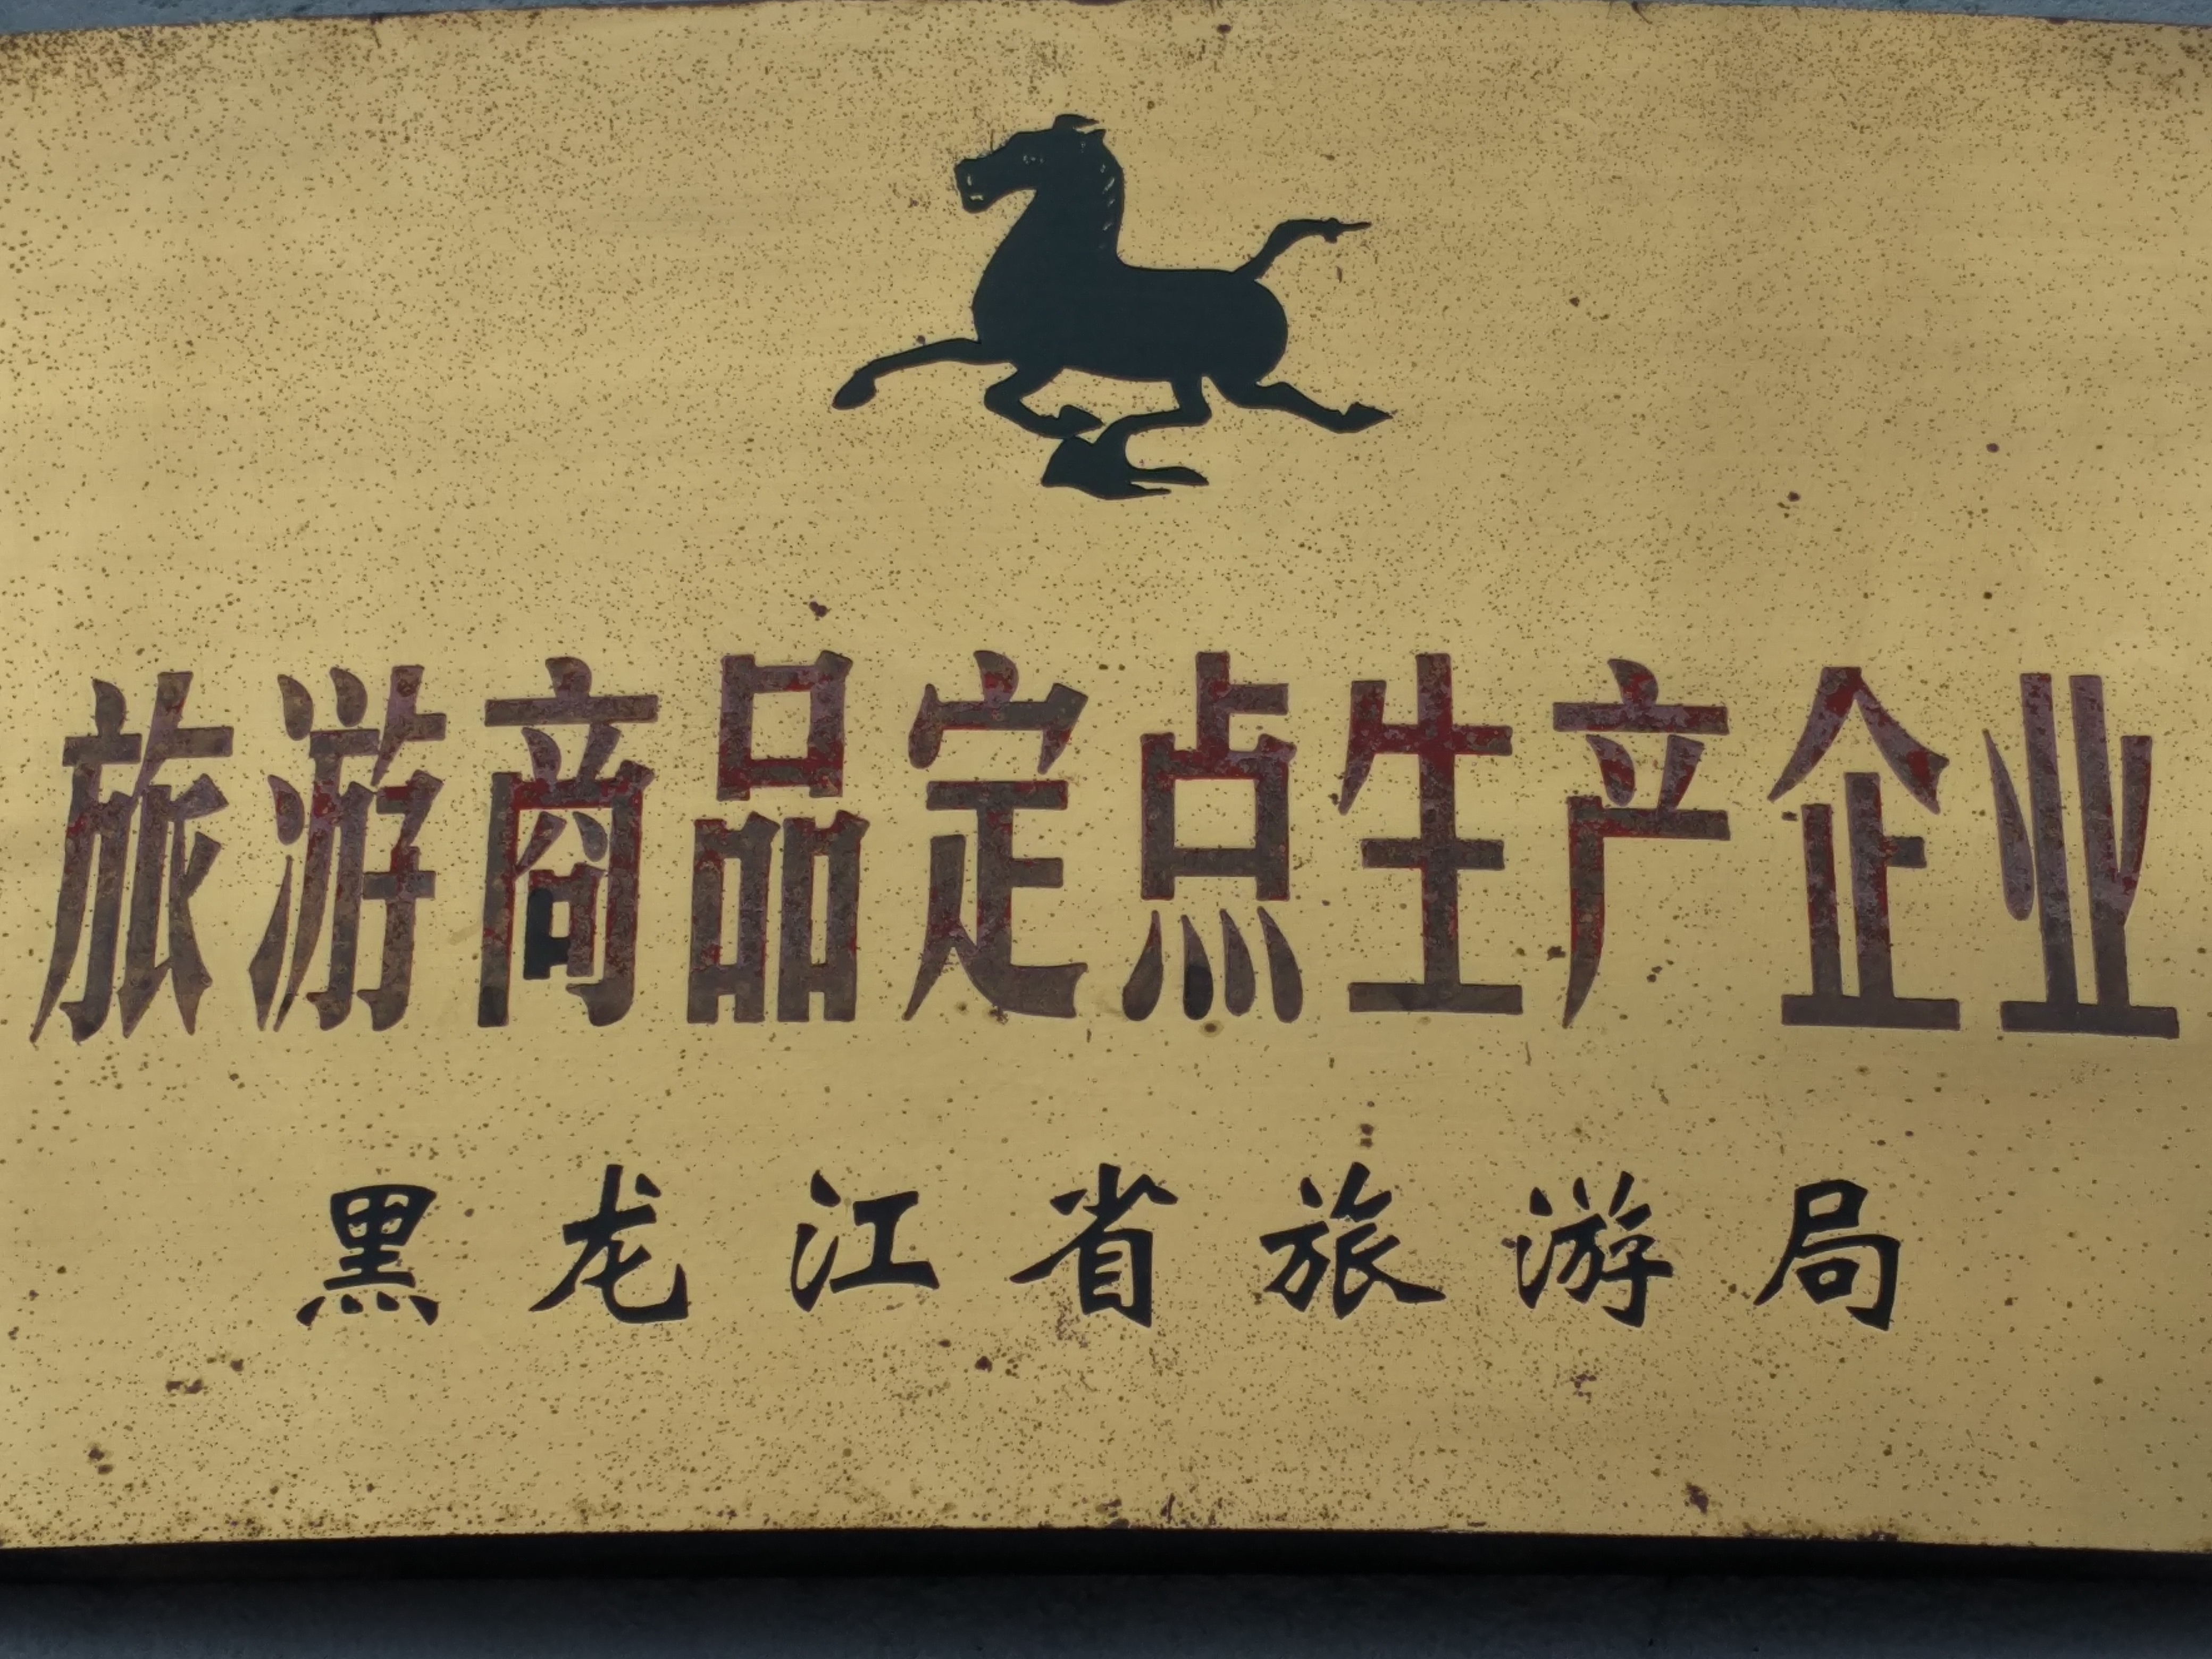 旅游商品定点生产企业
黑龙江省旅游局